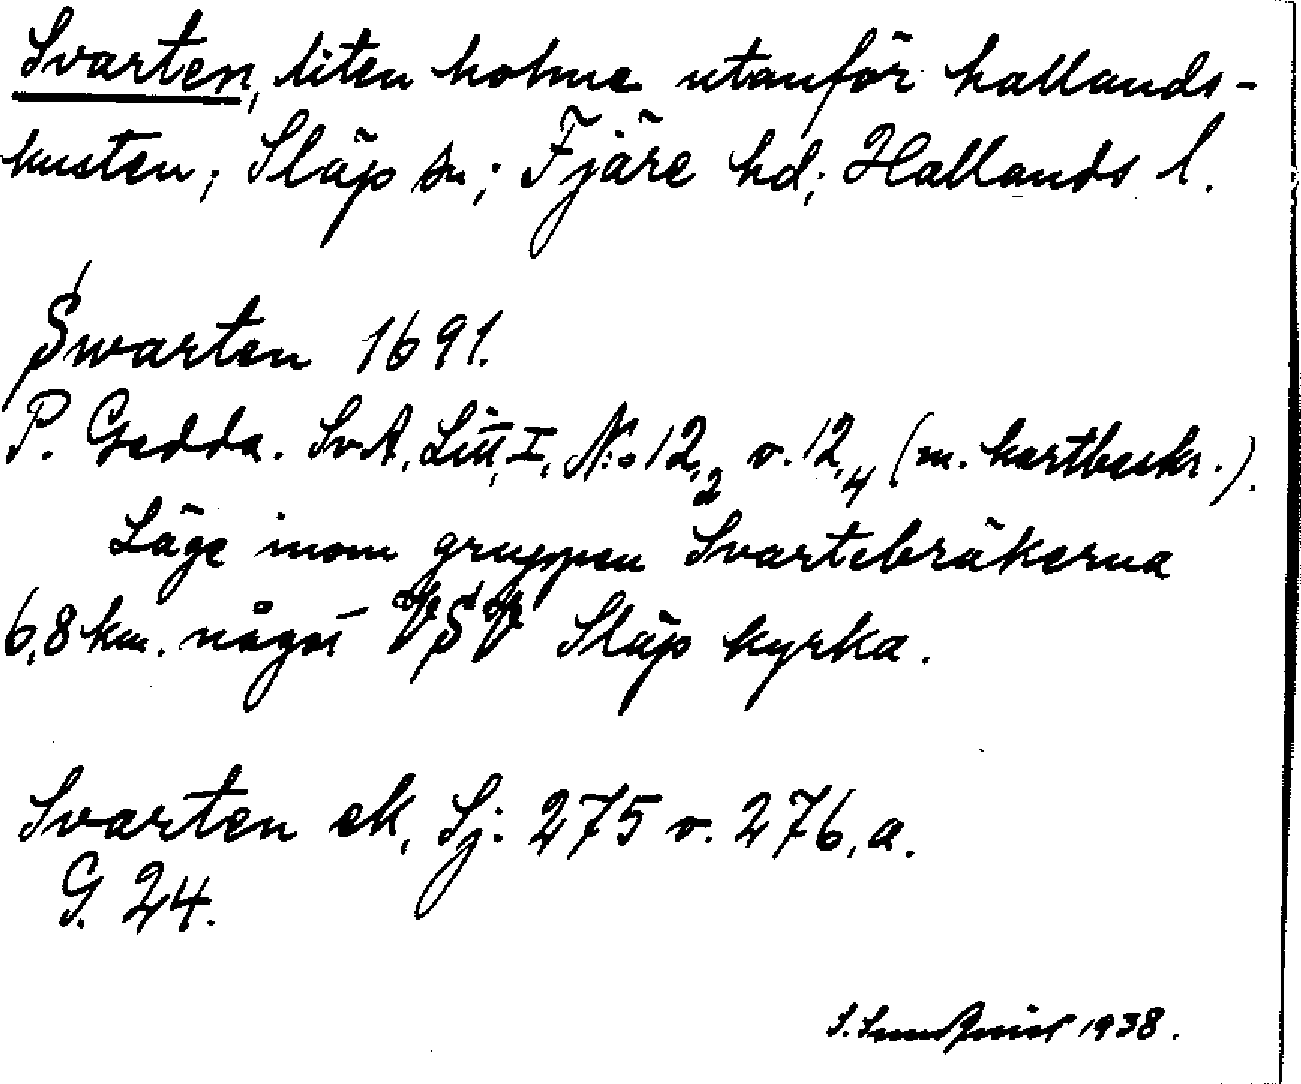 Svarten, liten holme utanför hallands-
kusten; Släp sn; Fjäre hd; Hallands l.
Swarten 1691.
P. Gedda. Sv.A, Litt, I, N:o 12,2 o. 12,4 (m. kartbeskr.).
Läge inom gruppen Svartebräkerna
6,8 km. något VSV Släp kyrka.
Svarten ek, Sj. 275 o. 276, a.
G. 24.
S. 1938.